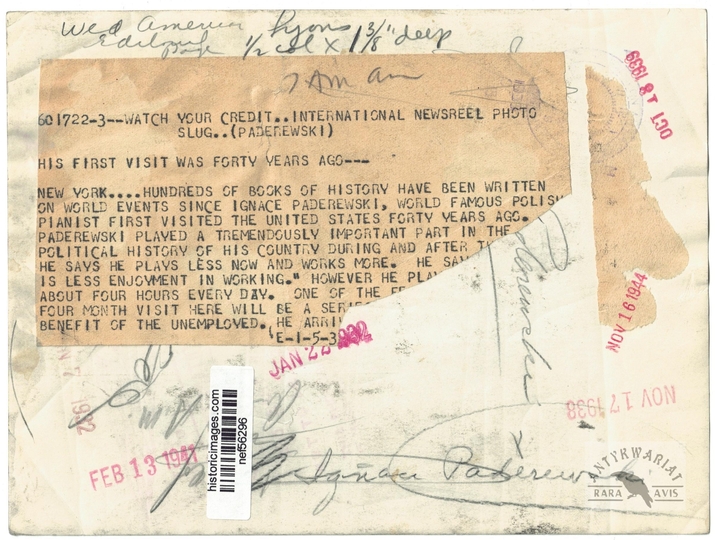 Wed America Lyons
Editorial Page 1/2 col x 1 3/8" deep
7 Am am
601722-3--WATCH YOUR CREDIT..INTERNATIONAL NEWSREEL PHOTO
SLUG..(PADEREWSKI)
HIS FIRST VISIT WAS FORTY YEARS AGO---
NEW YORK....HUNDREDS OF BOOKS OF HISTORY HAVE BEEN WRITTEN
ON WORLD EVENTS SINCE IGNACE PADEREWSKI, WORLD FAMOUS POLISH
PIANIST FIRST VISITED THE UNITED STATES FORTY YEARS AGO.
PADEREWSKI PLAYED A TREMENDOUSLY IMPORTANT PART IN THE
POLITICAL HISTORY OF HIS COUNTRY DURING AND AFTER
HE SAYS HE PLAYS LESS NOW AND WORKS MORE. HE
IS LESS ENJOYMENT IN WORKING." HOWEVER HE
ABOUT FOUR HOURS EVERY DAY. ONE OF THE
FOUR MONTH VISIT HERE WILL BE A
BENEFIT OF THE UNEMPLOYED. HE
E-1-5-3
OCT 18 1939
NOV 16 1944
JAN 22
NOV 17 1938
FEB 13 1941
Paderewski
Ignace Paderewski
historicimages.com
nef56296
ANTYKWARIAT
RARA AVIS